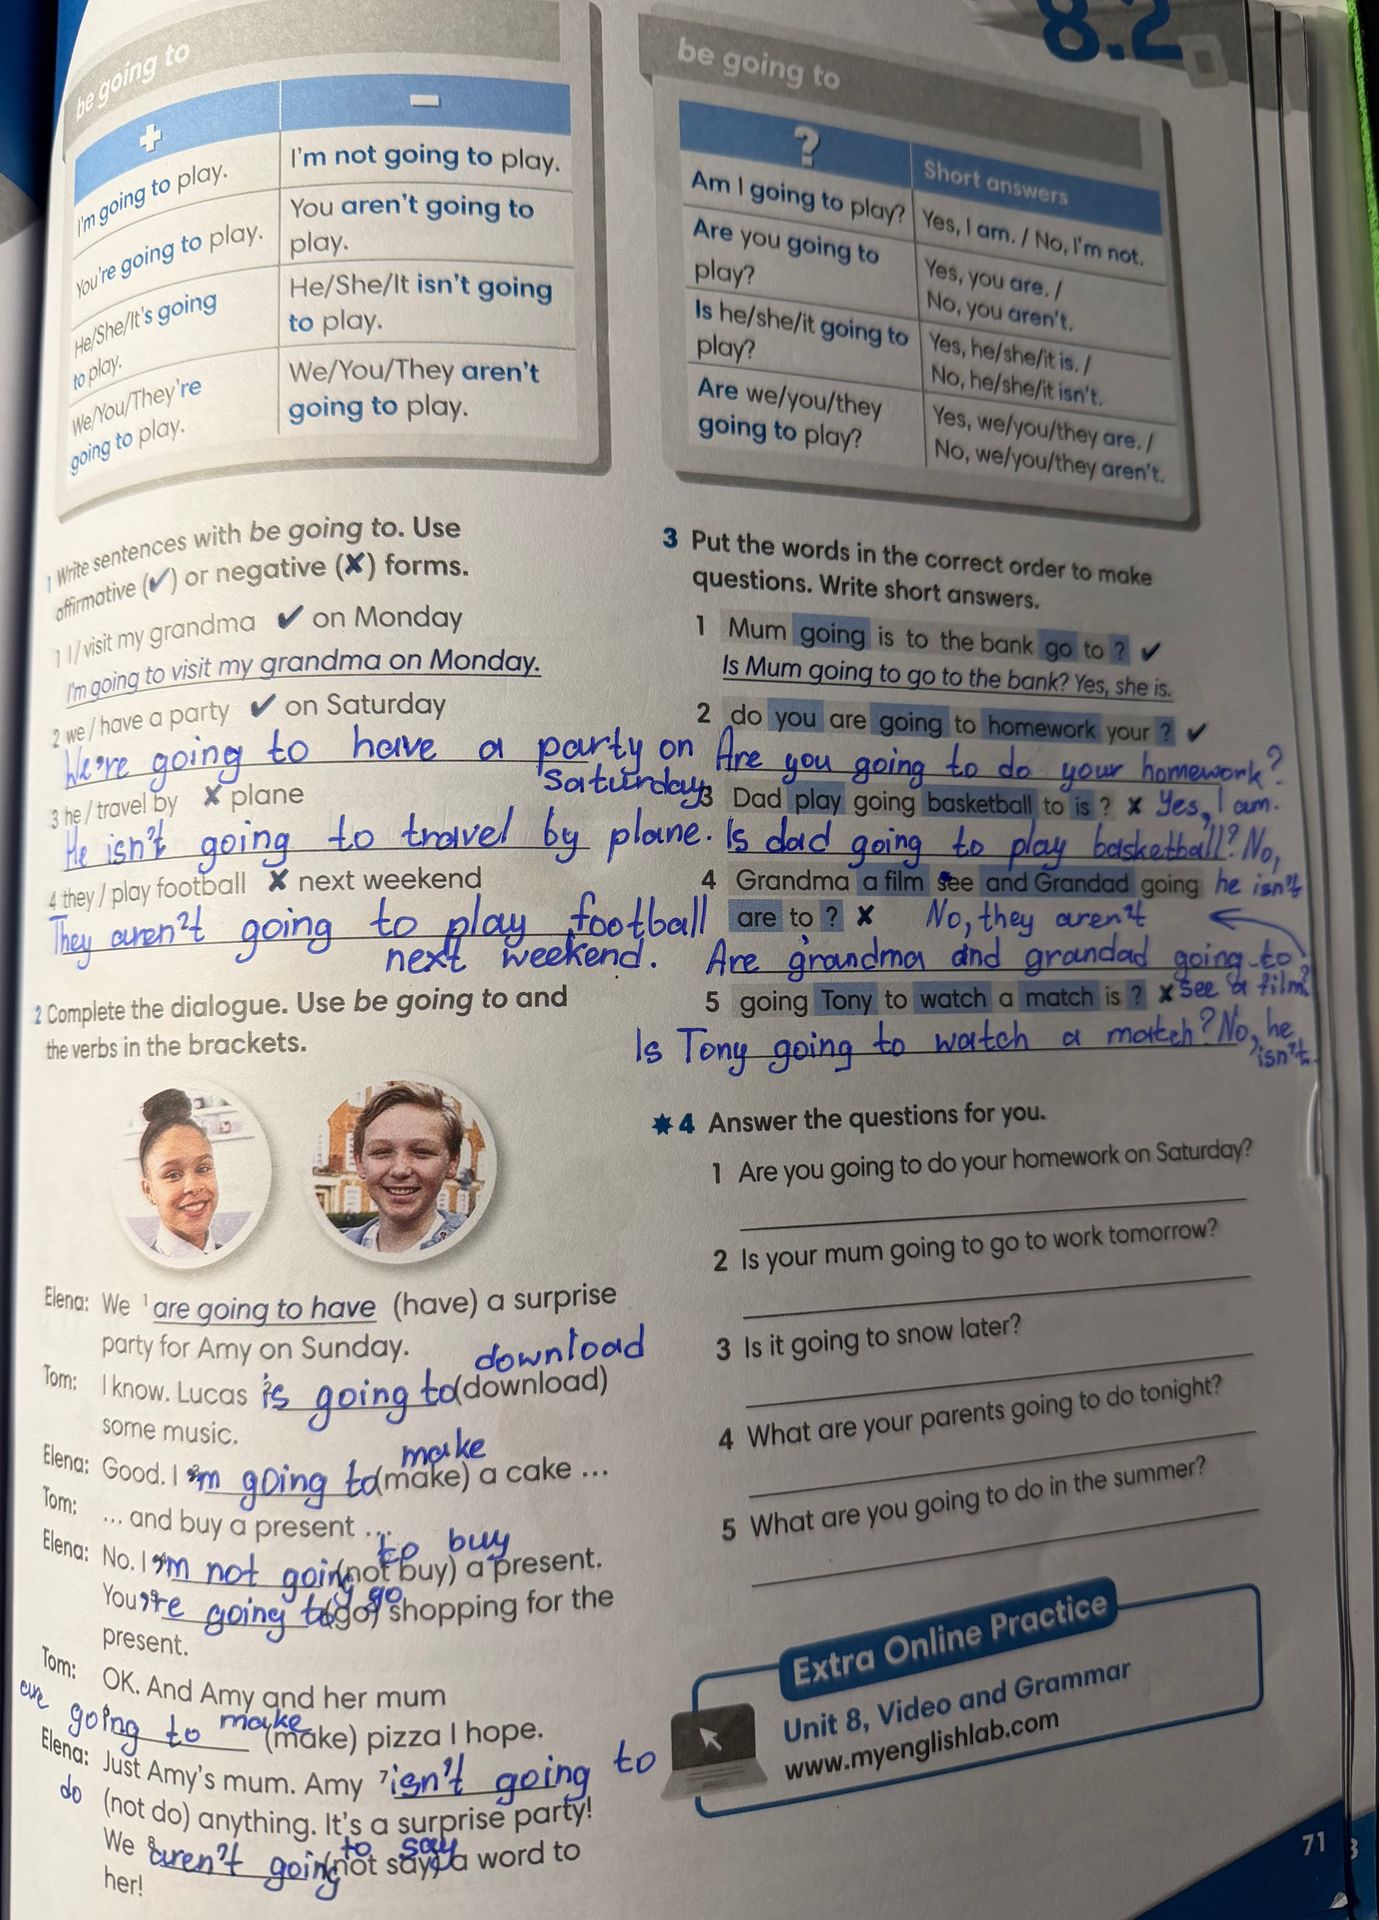 8.2
be going to
+ −
I'm going to play. I'm not going to play.
You're going to play. You aren't going to play.
He/She/It's going to play. He/She/It isn't going to play.
We/You/They're going to play. We/You/They aren't going to play.
be going to
? Short answers
Am I going to play? Yes, I am. / No, I'm not.
Are you going to play? Yes, you are. / No, you aren't.
Is he/she/it going to play? Yes, he/she/it is. / No, he/she/it isn't.
Are we/you/they going to play? Yes, we/you/they are. / No, we/you/they aren't.
1 Write sentences with be going to. Use
affirmative (✔) or negative (✘) forms.
1 I / visit my grandma ✔ on Monday
I'm going to visit my grandma on Monday.
2 we / have a party ✔ on Saturday
We're going to have a party on
Saturday
3 he / travel by ✘ plane
He isn't going to travel by plane.
4 they / play football ✘ next weekend
They aren't going to play football
next weekend.
2 Complete the dialogue. Use be going to and
the verbs in the brackets.
Elena: We 1 are going to have (have) a surprise
party for Amy on Sunday.
download
Tom: I know. Lucas 2 is going to (download)
some music.
make
Elena: Good. I 3 'm going to (make) a cake ...
Tom: ... and buy a present ...
to buy
Elena: No. I 4 'm not going (not buy) a present.
go
You 5 're going to (go) shopping for the
present.
Tom: OK. And Amy and her mum
are going to make (make) pizza I hope.
Elena: Just Amy's mum. Amy 7 isn't going to
do (not do) anything. It's a surprise party!
to say
We 8 aren't going (not say) a word to
her!
3 Put the words in the correct order to make
questions. Write short answers.
1 Mum going is to the bank go to ? ✔
Is Mum going to go to the bank? Yes, she is.
2 do you are going to homework your ? ✔
Are you going to do your homework?
Yes, I am.
3 Dad play going basketball to is ? ✘
Is dad going to play basketball? No,
he isn't
4 Grandma a film see and Grandad going
are to ? ✘ No, they aren't
Are grandma and grandad going to
see a film?
5 going Tony to watch a match is ? ✘
Is Tony going to watch a match? No, he
isn't.
4 Answer the questions for you.
1 Are you going to do your homework on Saturday?
2 Is your mum going to go to work tomorrow?
3 Is it going to snow later?
4 What are your parents going to do tonight?
5 What are you going to do in the summer?
Extra Online Practice
Unit 8, Video and Grammar
www.myenglishlab.com
71
3